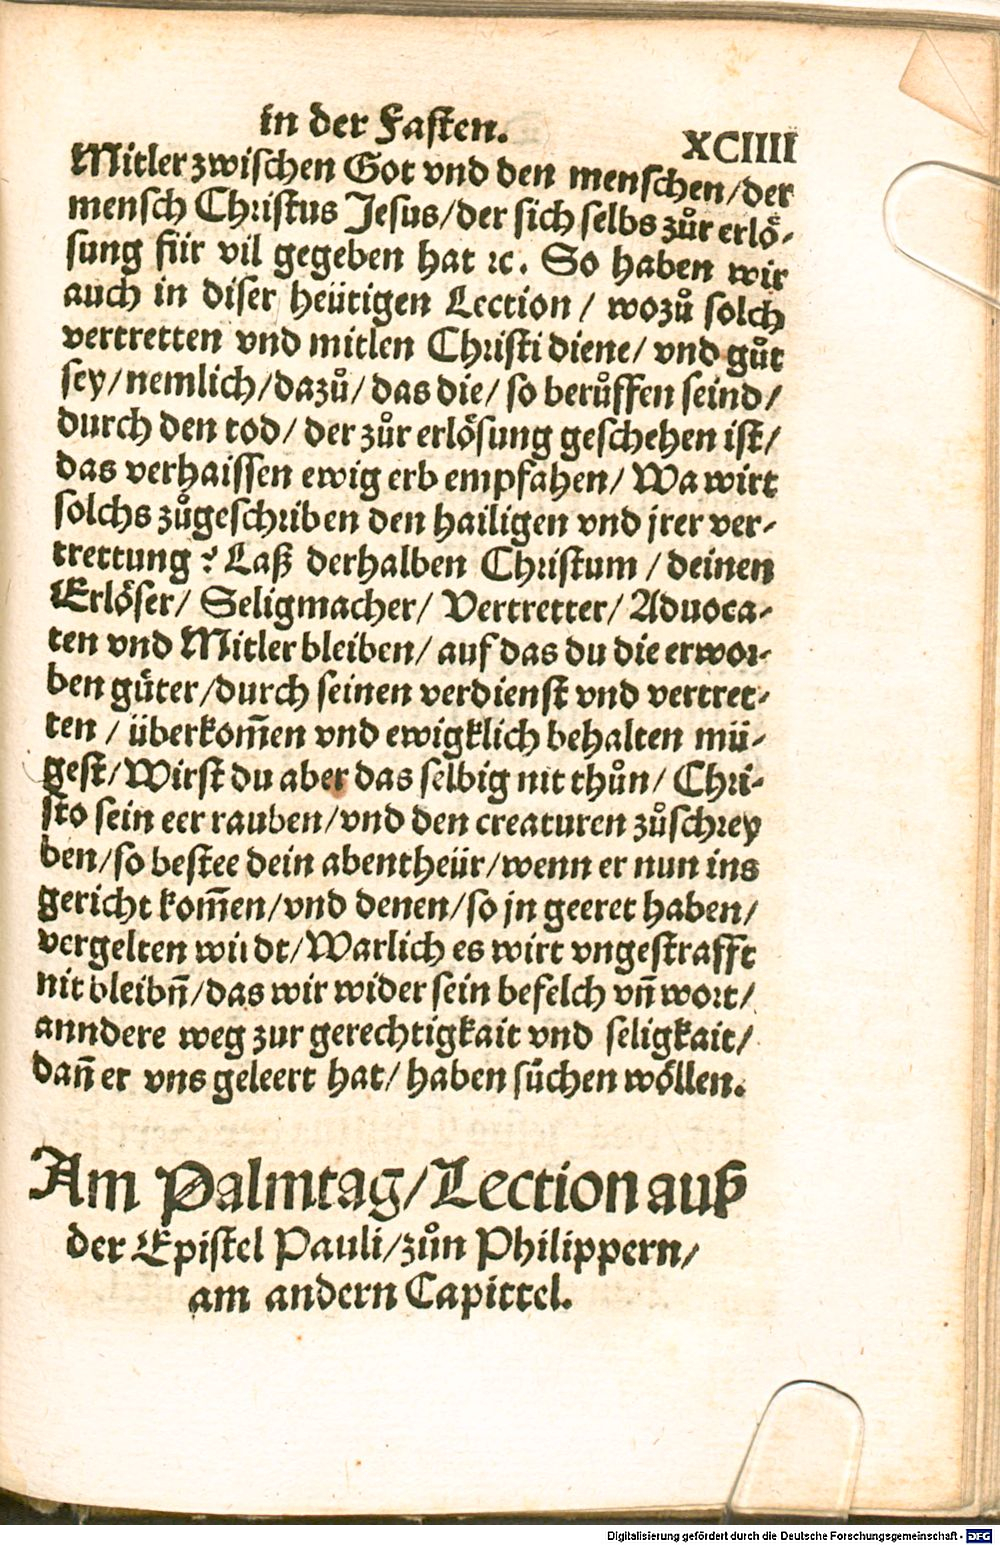 in der Fasten.
XCIIII
Mitler zwischen Got vnd den menschen/der
mensch Christus Jesus/der sich selbs zůr erlö-
sung für vil gegeben hat ꝛc. So haben wir
auch in diser heütigen Lection / wozů solch
vertretten vnd mitlen Christi diene/ vnd gůt
sey/nemlich/dazů/ das die/ so berůffen seind/
durch den tod/ der zůr erlösung geschehen ist/
das verhaissen ewig erb empfahen/ Wa wirt
solchs zůgeschriben den hailigen vnd jrer ver-
trettung? Laß derhalben Christum / deinen
Erlöser/ Seligmacher/ Vertretter/ Aduoca-
ten vnd Mitler bleiben/ auf das du die erwor-
ben güter/durch seinen verdienst vnd vertret-
ten / überkom̃en vnd ewigklich behalten mü-
gest/Wirst du aber das selbig nit thůn/ Chri-
sto sein eer rauben/vnd den creaturen zůschrey
ben/so bestee dein abentheür/wenn er nun ins
gericht kom̃en/vnd denen/so jn geeret haben/
vergelten würdt/Warlich es wirt vngestrafft
nit bleibñ/das wir wider sein befelch vñ wort/
anndere weg zur gerechtigkait vnd seligkait/
dañ er vns geleert hat/ haben sůchen wöllen.
Am Palmtag/Lection auß
der Epistel Pauli/zůn Philippern/
am andern Capittel.
Digitalisierung gefördert durch die Deutsche Forschungsgemeinschaft - DFG